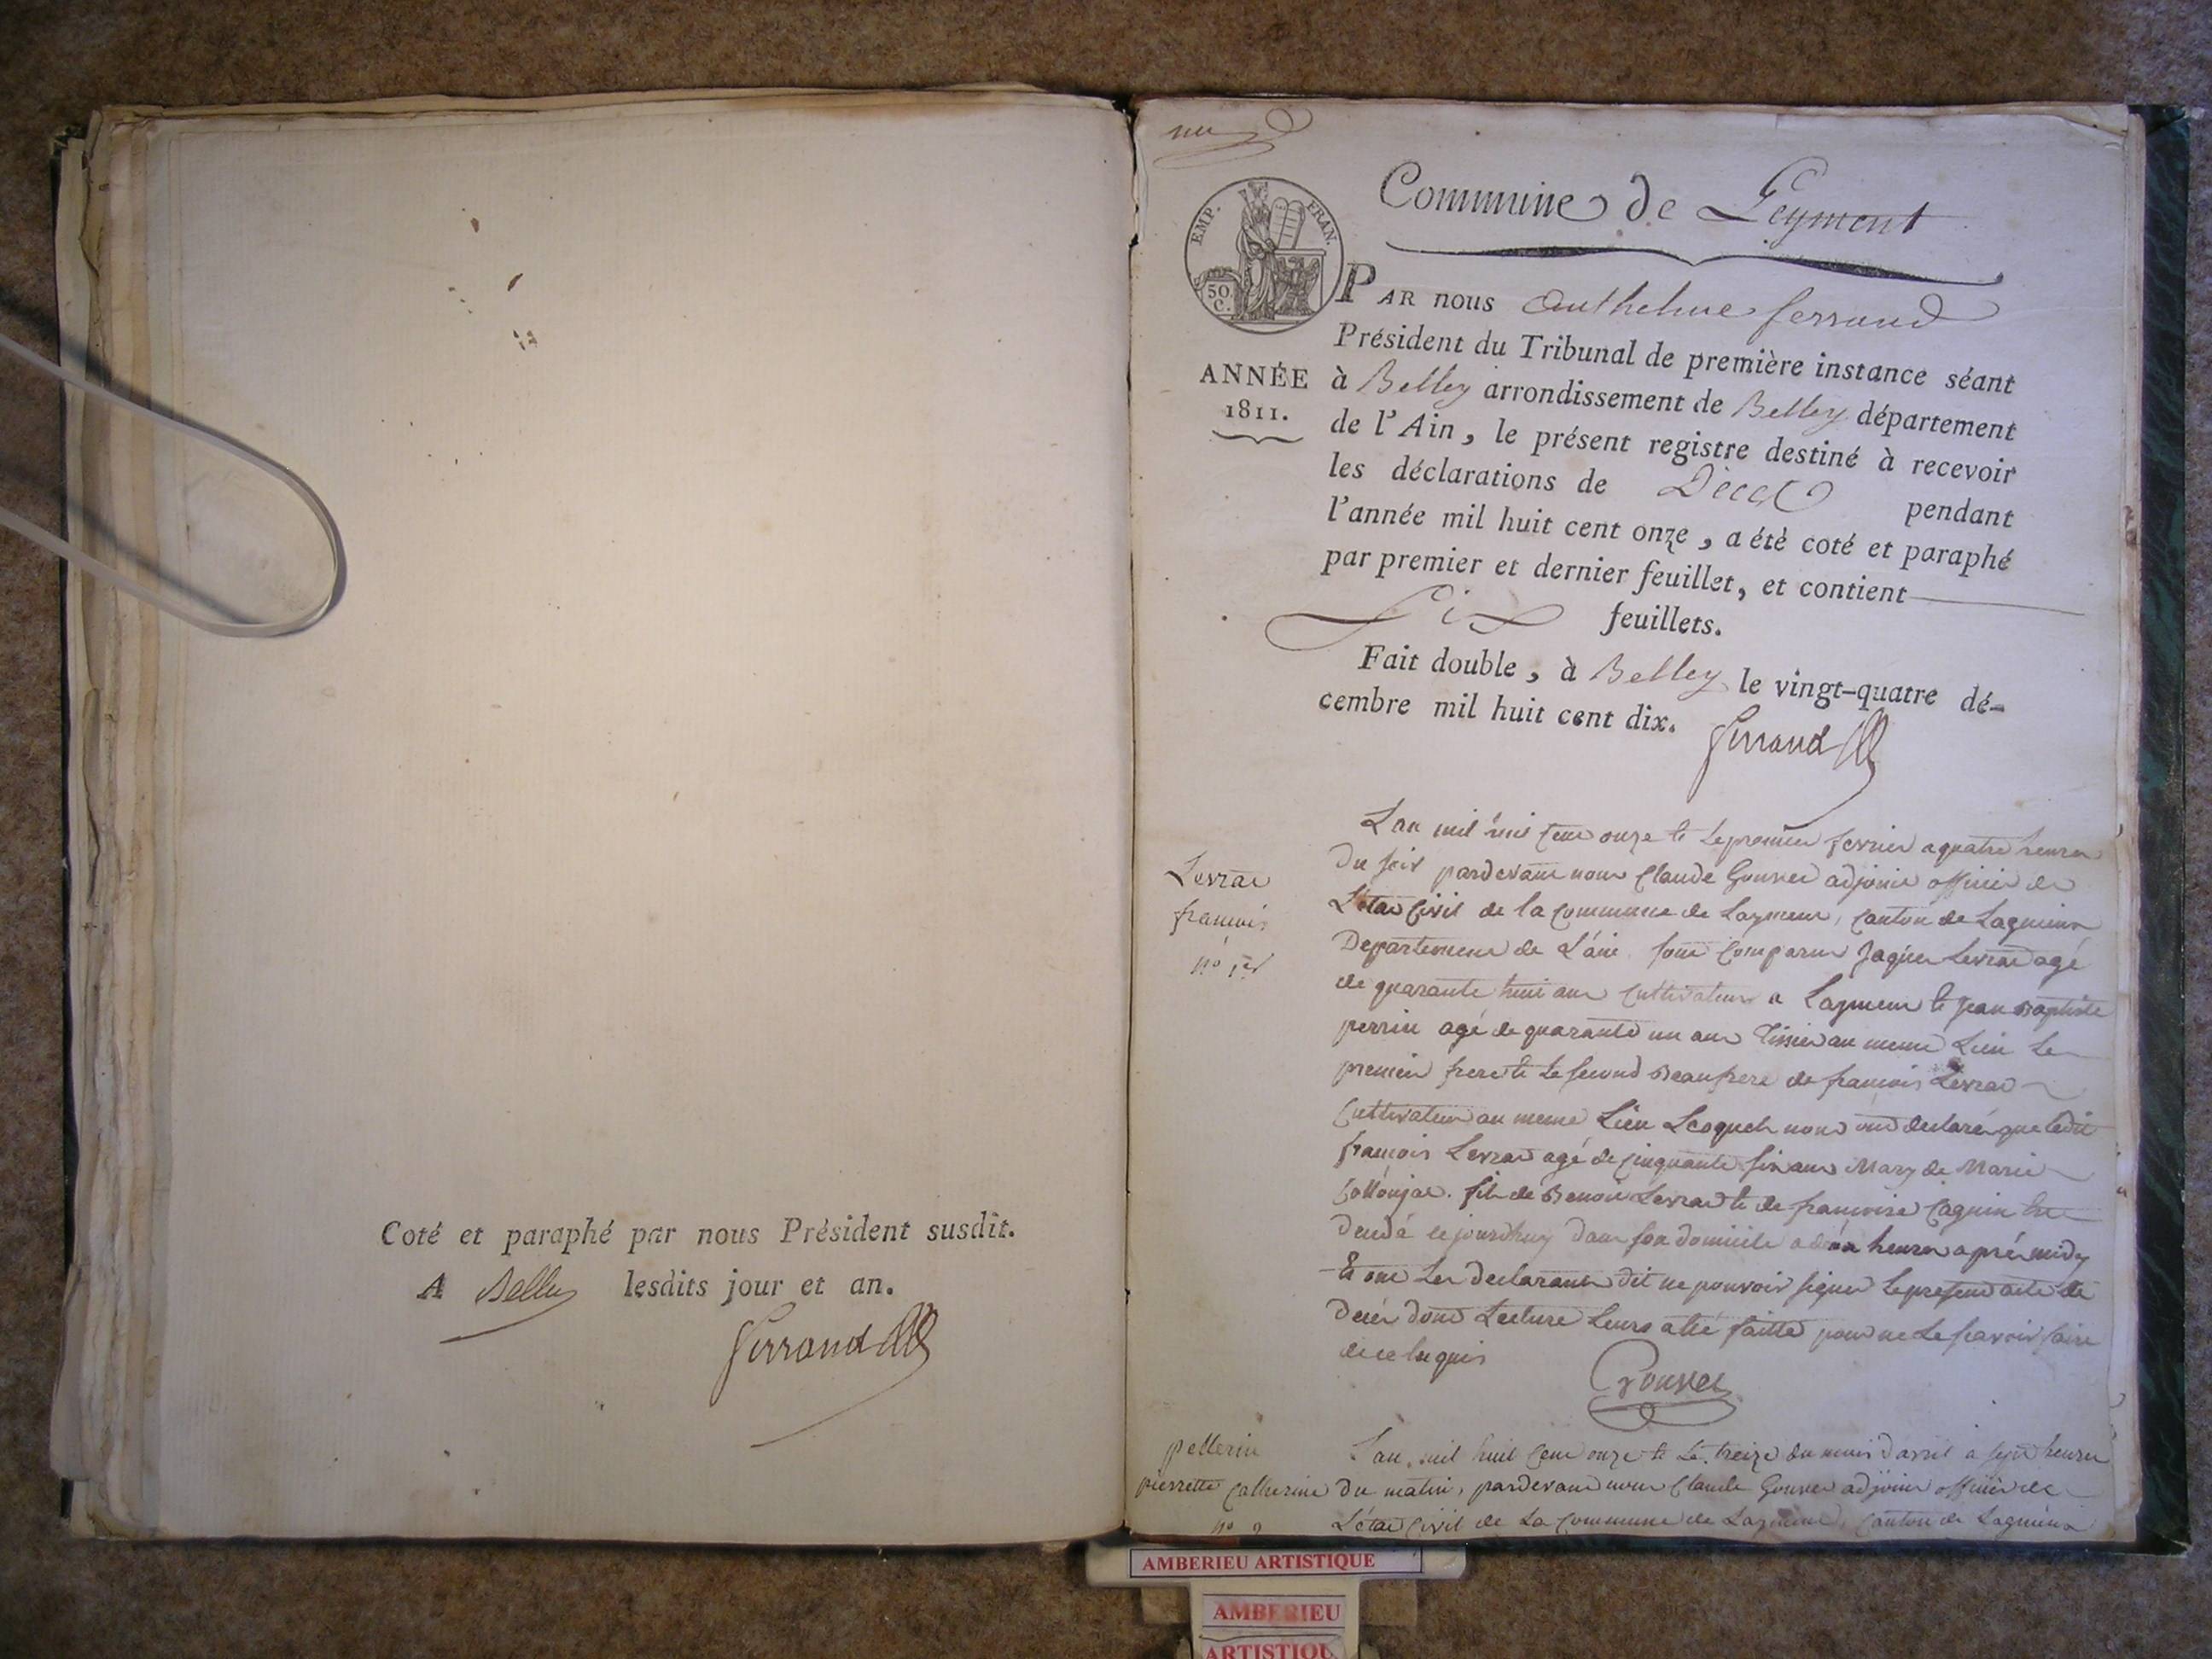 Coté et paraphé par nous Président susdit.
A Belley lesdits jour et an.
Ferrand
un
Commune de Leyment
EMP. FRAN.
50 C.
ANNÉE
1811.
PAR nous Anthelme ferrand
Président du Tribunal de première instance séant
à Belley arrondissement de Belley département
de l'Ain, le présent registre destiné à recevoir
les déclarations de Décès pendant
l'année mil huit cent onze, a été coté et paraphé
par premier et dernier feuillet, et contient
Six feuillets.
Fait double, à Belley le vingt-quatre dé-
cembre mil huit cent dix.
Ferrand
Levrat
francois
n° 1er
L'an mil huit cent onze et le premier fevrier a quatre heures
du soir pardevant nous Claude Gouvet adjoint officier de
L'état Civil de la Commune de Laymeut, canton de Lagnieux
Departement de L'ain. sont Comparus Jaques Levrat agé
de quarante huit ans Cultivateur a Laymeut et jean Baptiste
perrin agé de quarante un ans Tissier au meme Lieu Le
premier frere et Le second Beaufrere de francois Levrat
Cultivateur au meme Lieu Lesquels nous ont declaré que ledit
francois Levrat agé de cinquante six ans Mary de Marie
fils de Benoit Levrat et de francoise est
decedé cejourdhuy dans son domicile a deux heures aprés midy
Et ont Les declarants dit ne pouvoir signer Le present acte de
decés dont Lecture Leurs a été faitte pour ne Le scavoir faire
de ce Requis
Gouvet
pellerin
pierrette Catherine
n° 2
L'an mil huit cent onze et Le treize du mois d'avril a sept heures
du matin, pardevant nous Claude Gouvet adjoint officier de
L'état Civil de La Commune de Laymeut, Canton de Lagnieux
AMBERIEU ARTISTIQUE
AMBERIEU
ARTISTIQU